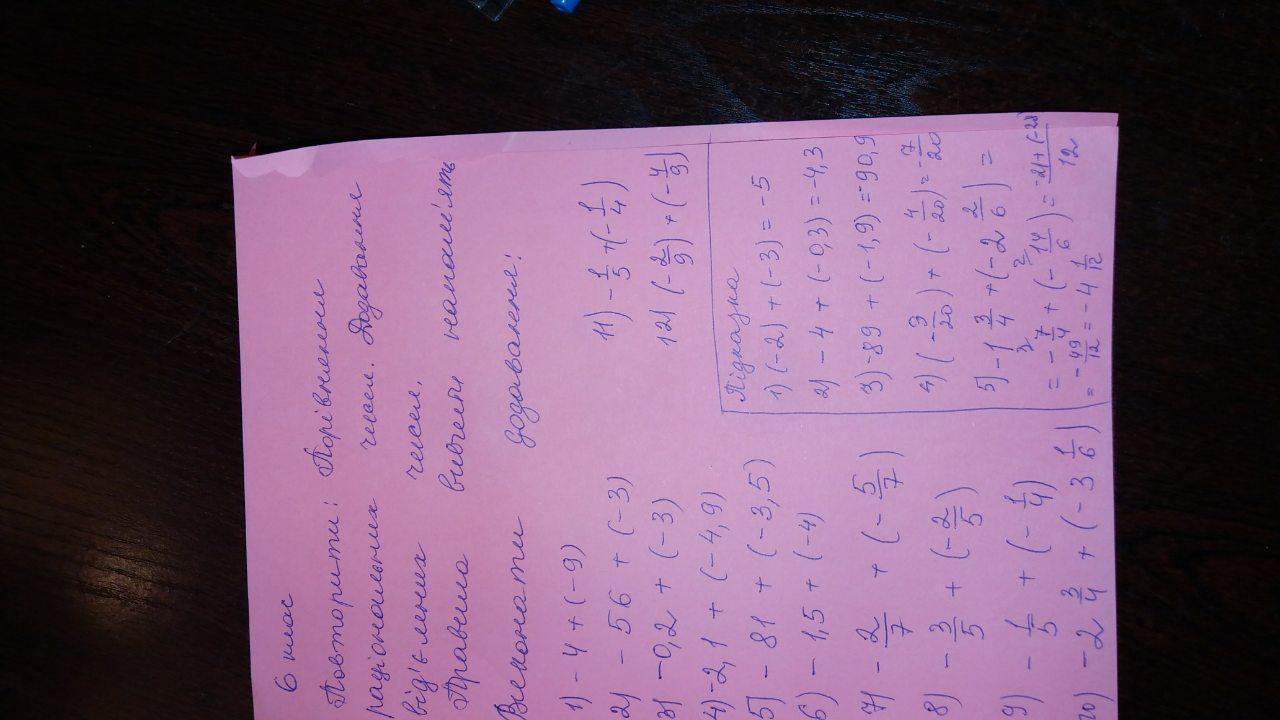 6 клас
Повторити: Порівняння
раціональних чисел. Додавання
від'ємних чисел.
Правила вивчити напам'ять
Виконати додавання:
1) - 4 + (-9)
2) - 56 + (-3)
3) -0,2 + (-3)
4) -2,1 + (-4,9)
5) - 81 + (-3,5)
6) - 1,5 + (-4)
7) - 2/7 + (- 5/7)
8) - 3/5 + (- 2/5)
9) - 1/5 + (- 1/4)
10) - 2 3/4 + (- 3 1/6)
11) - 1/5 + (- 1/4)
12) (- 2/9) + (- 4/9)
Підказка
1) (-2) + (-3) = - 5
2) - 4 + (-0,3) = -4,3
3) -89 + (-1,9) = -90,9
4) (- 9/20) + (- 4/20) = - 7/20
5) - 1 3/4 + (- 2 2/6) =
= - 7/4 + (- 14/6) = -21+(-28)/12
= - 49/12 = - 4 1/12